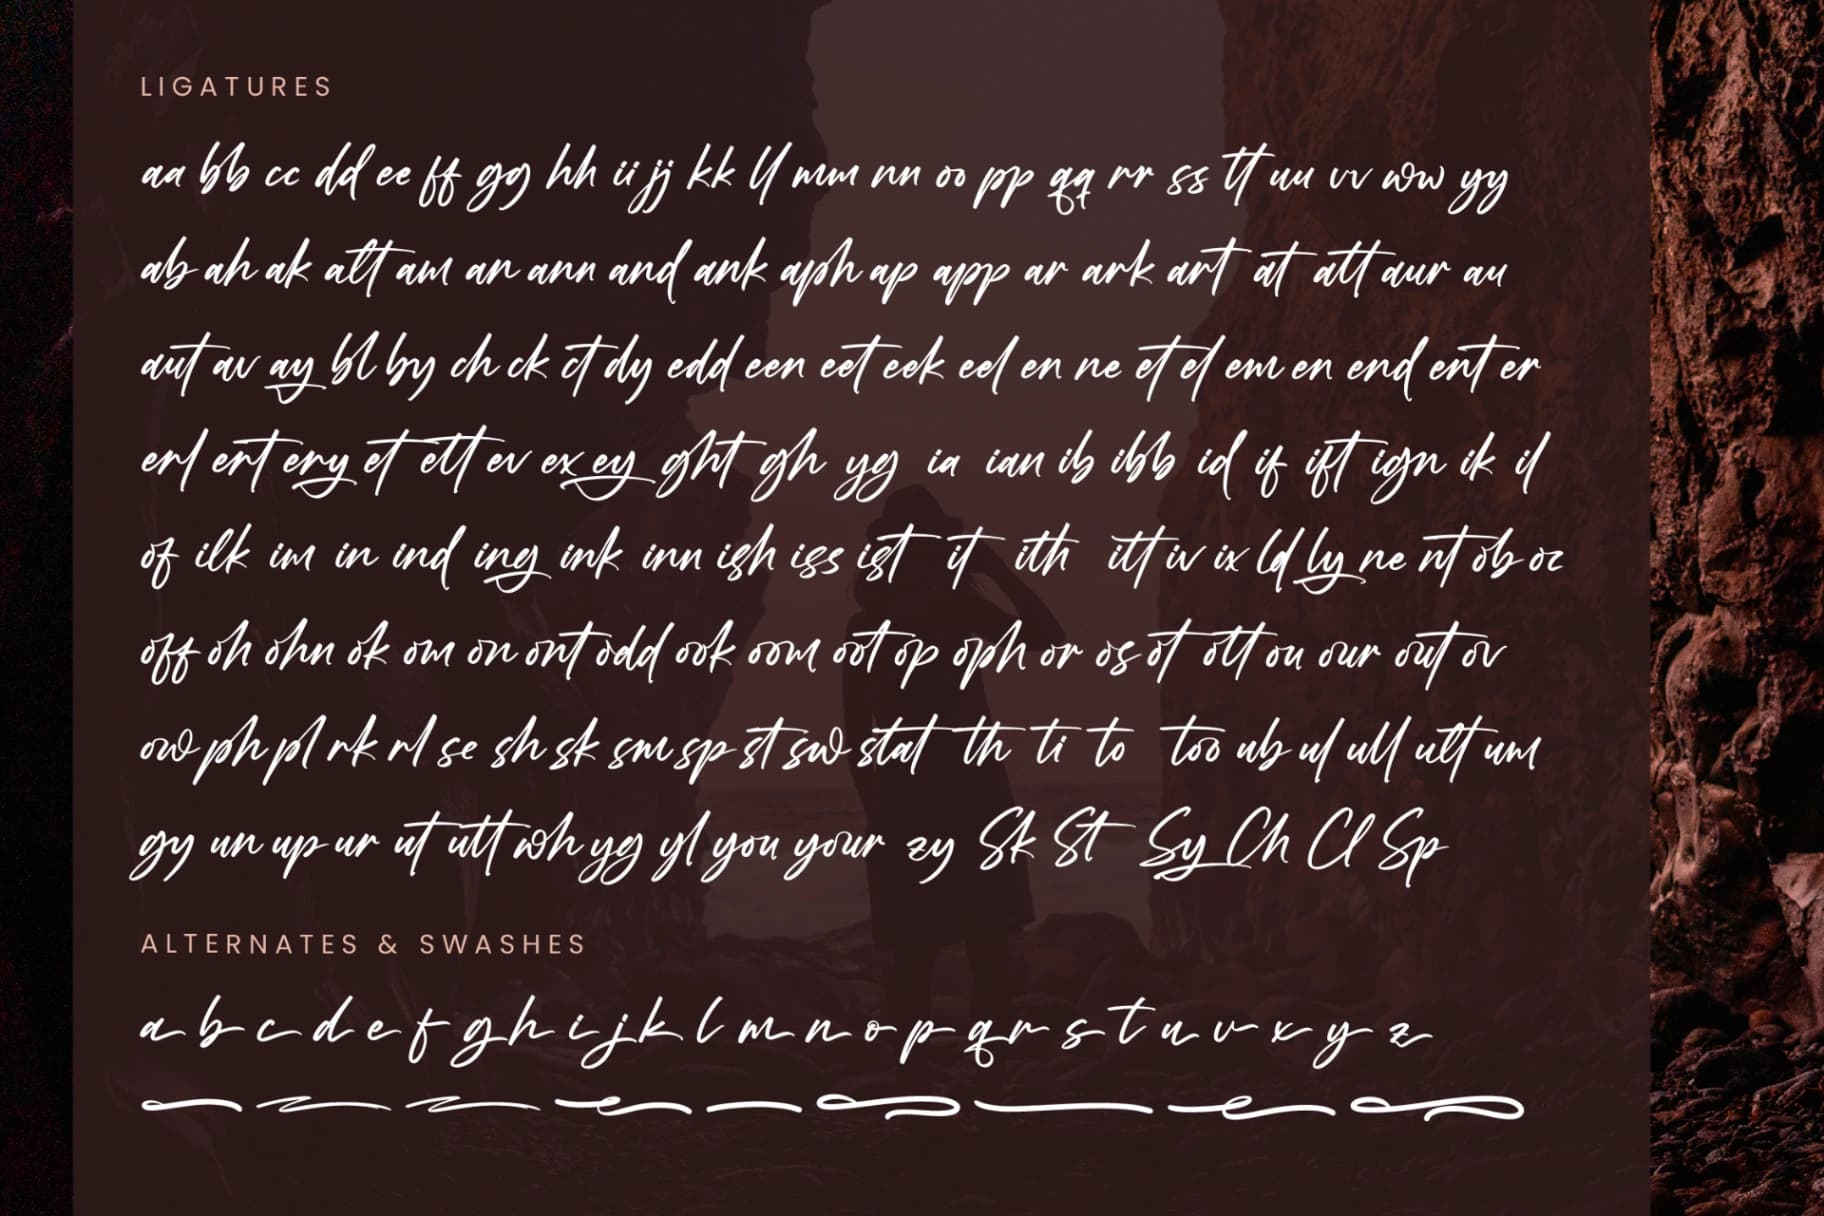 LIGATURES
aa bb cc dd ee ff gg hh ii jj kk ll mm nn oo pp qq rr ss tt uu vv ww yy
ab ah ak alt am an ann and ank aph ap app ar ark art at att aur au
aut av ay bl by ch ck ct dy edd een eet eek eel en ne et el em en end ent er
erl ert ery et ett ev ex ey ght gh yg ia ian ib ibb id if ift ign ik il
of ilk im in ind ing ink inn ish iss ist it ith itt iv ix ld ly ne nt ob oc
off oh ohn ok om on ont odd ook oom oot op oph or os ot ott ou our out ov
ow ph pl rk rl se sh sk sm sp st sw stat th ti to too ub ul ull ult um
gy un up ur ut utt wh yg yl you your zy Sk St Sy Ch Cl Sp
ALTERNATES & SWASHES
a b c d e f g h i j k l m n o p q r s t u v x y z